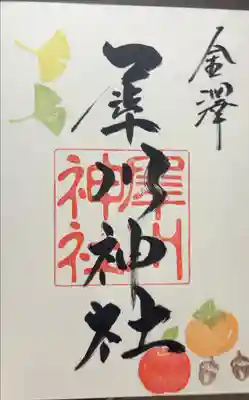 金澤
犀川神社
犀川
神社